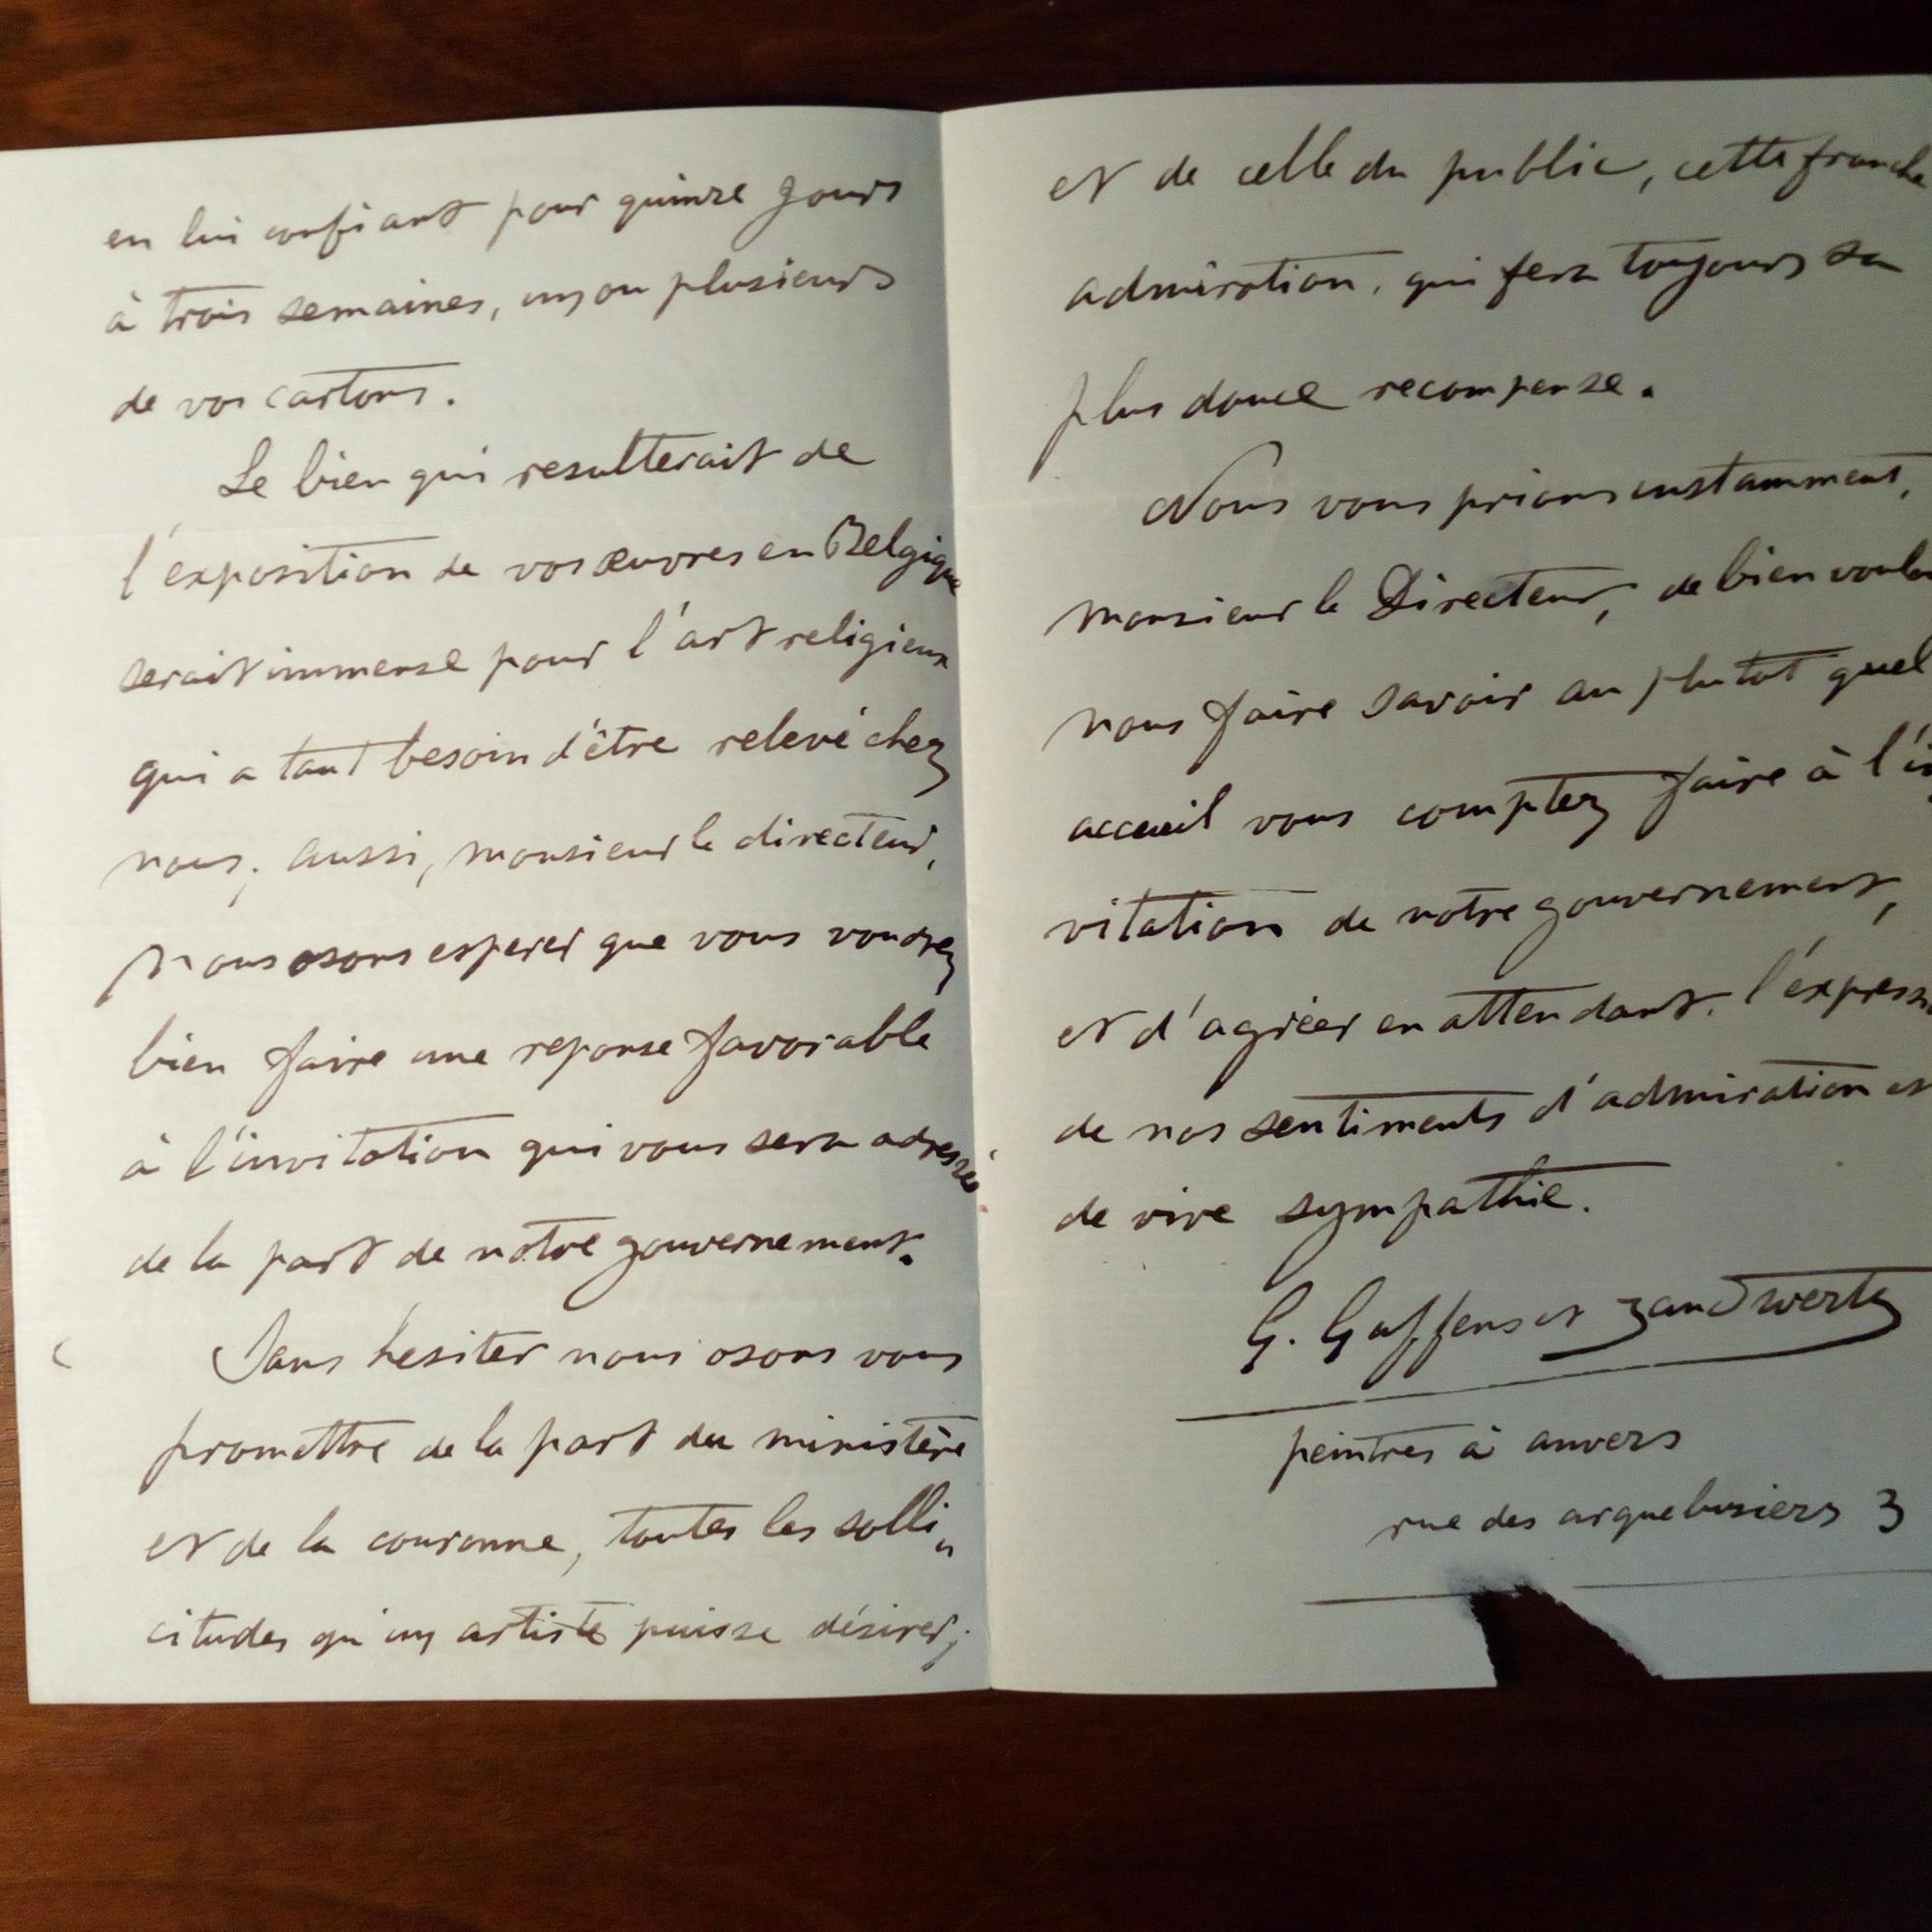 en lui confiant pour quinze jours
à trois semaines, un, ou plusieurs
de vos cartons.
Le bien qui resulterait de
l'exposition de vos œuvres en Belgique
serait immense pour l'art religieux
qui a tant besoin d'être relevé chez
nous; aussi, monsieur le directeur,
nous osons esperer que vous voudrez
bien faire une reponse favorable
à l'invitation qui vous sera adressée
de la part de notre gouvernement.
Sans hesiter nous osons vous
promettre de la part du ministère
et de la couronne, toutes les solli„
citudes qu'un artiste puisse désirer;
et de celle du public, cette franche
admiration, qui fera toujours sa
plus douce recompense.
Nous vous prions instamment,
monsieur le Directeur, de bien voulo
nous faire savoir au plutot quel
accueil vous comptez faire à l'in
vitation de notre gouvernement,
et d'agréer en attendant, l'express
de nos sentiments d'admiration et
de vive sympathie.
G. Guffens et J and Swerts
peintres à anvers
rue des arquebusiers 3